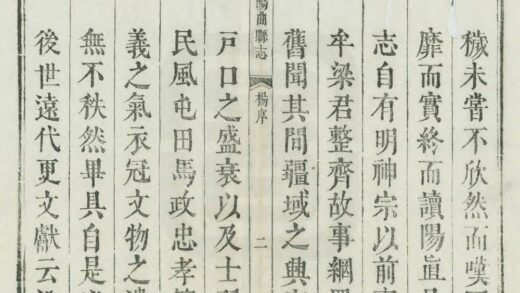 穢未嘗不欣然而嘆
靡而實終而讀陽直
志自有明神宗以前
牟梁君整齊故事網
舊聞其間疆域之興
陽曲縣志 楊序 二
戸口之盛衰以及士
民風屯田馬政忠孝
義之氣衣冠文物之
無不秩然畢具自是
後世遠代更文獻云